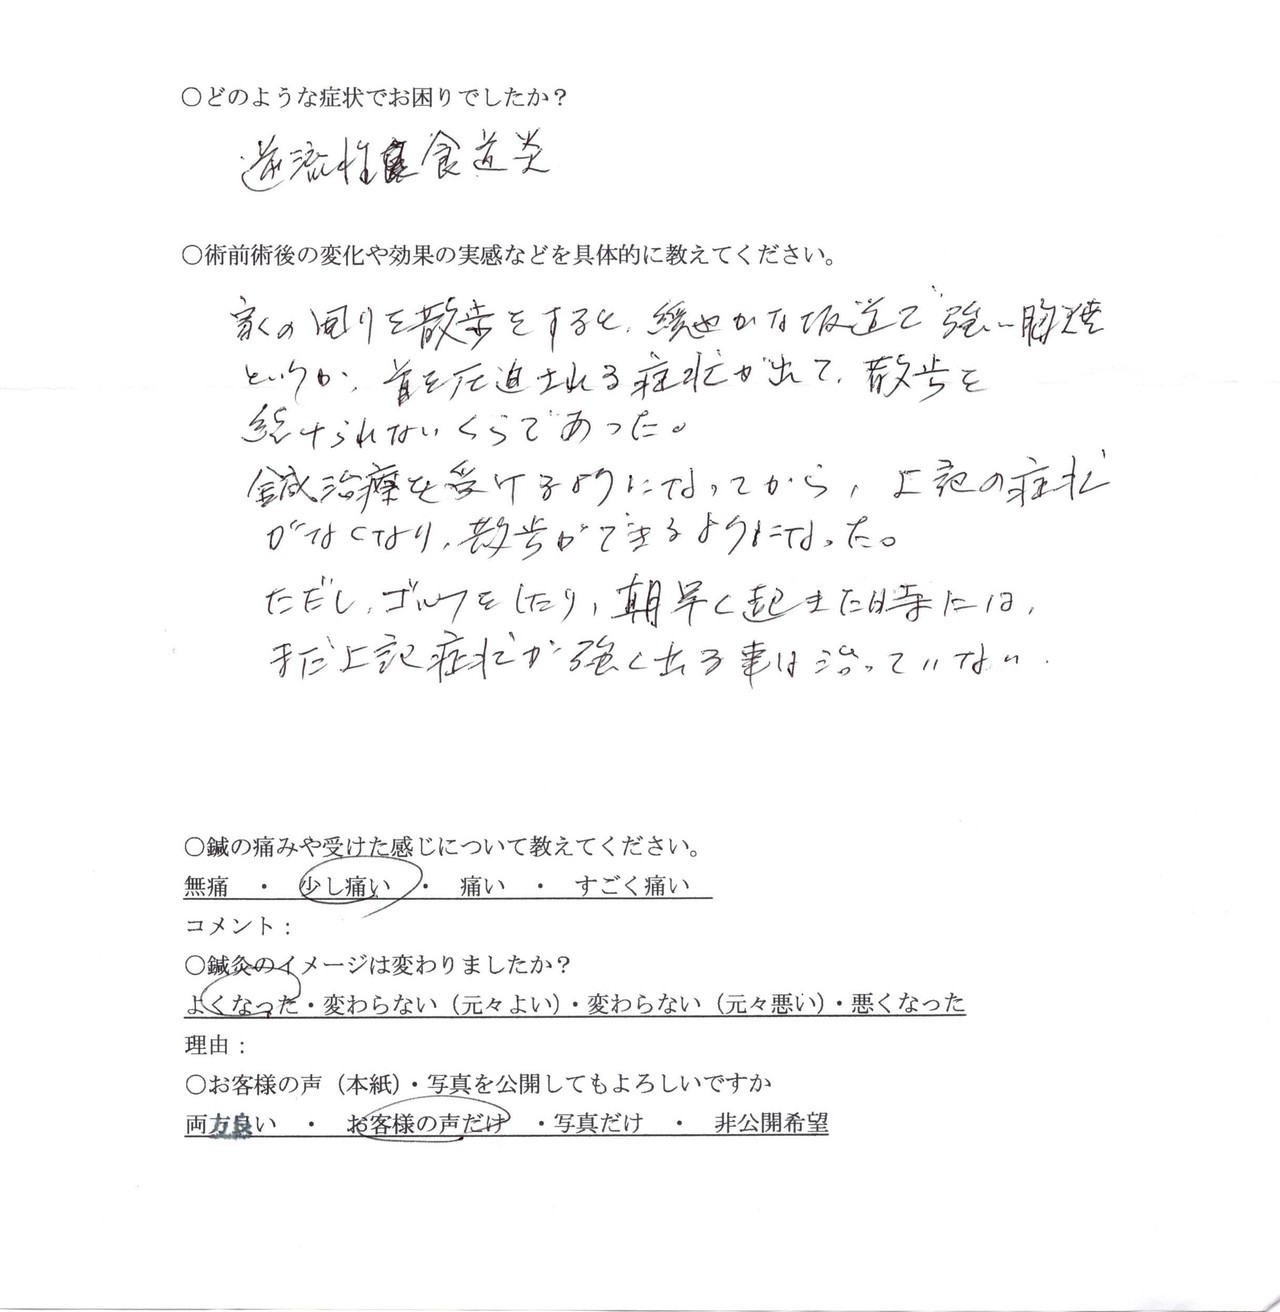 ○どのような症状でお困りでしたか？
逆流性食道炎
○術前術後の変化や効果の実感などを具体的に教えてください。
家の周りを散歩をすると、緩やかな坂道で強い胸焼
というか、首を圧迫される症状が出て、散歩を
続けられないくらであった。
鍼治療を受けるようになってから、上記の症状
がなくなり、散歩ができるようになった。
ただし、ゴルフをしたり、朝早く起きた時には、
まだ上記症状が強く出る事は治っていない.
○鍼の痛みや受けた感じについて教えてください。
無痛 ・ 少し痛い ・ 痛い ・ すごく痛い
コメント：
○鍼灸のイメージは変わりましたか？
よくなった・変わらない（元々よい）・変わらない（元々悪い）・悪くなった
理由：
○お客様の声（本紙）・写真を公開してもよろしいですか
両方良い ・ お客様の声だけ ・写真だけ ・ 非公開希望